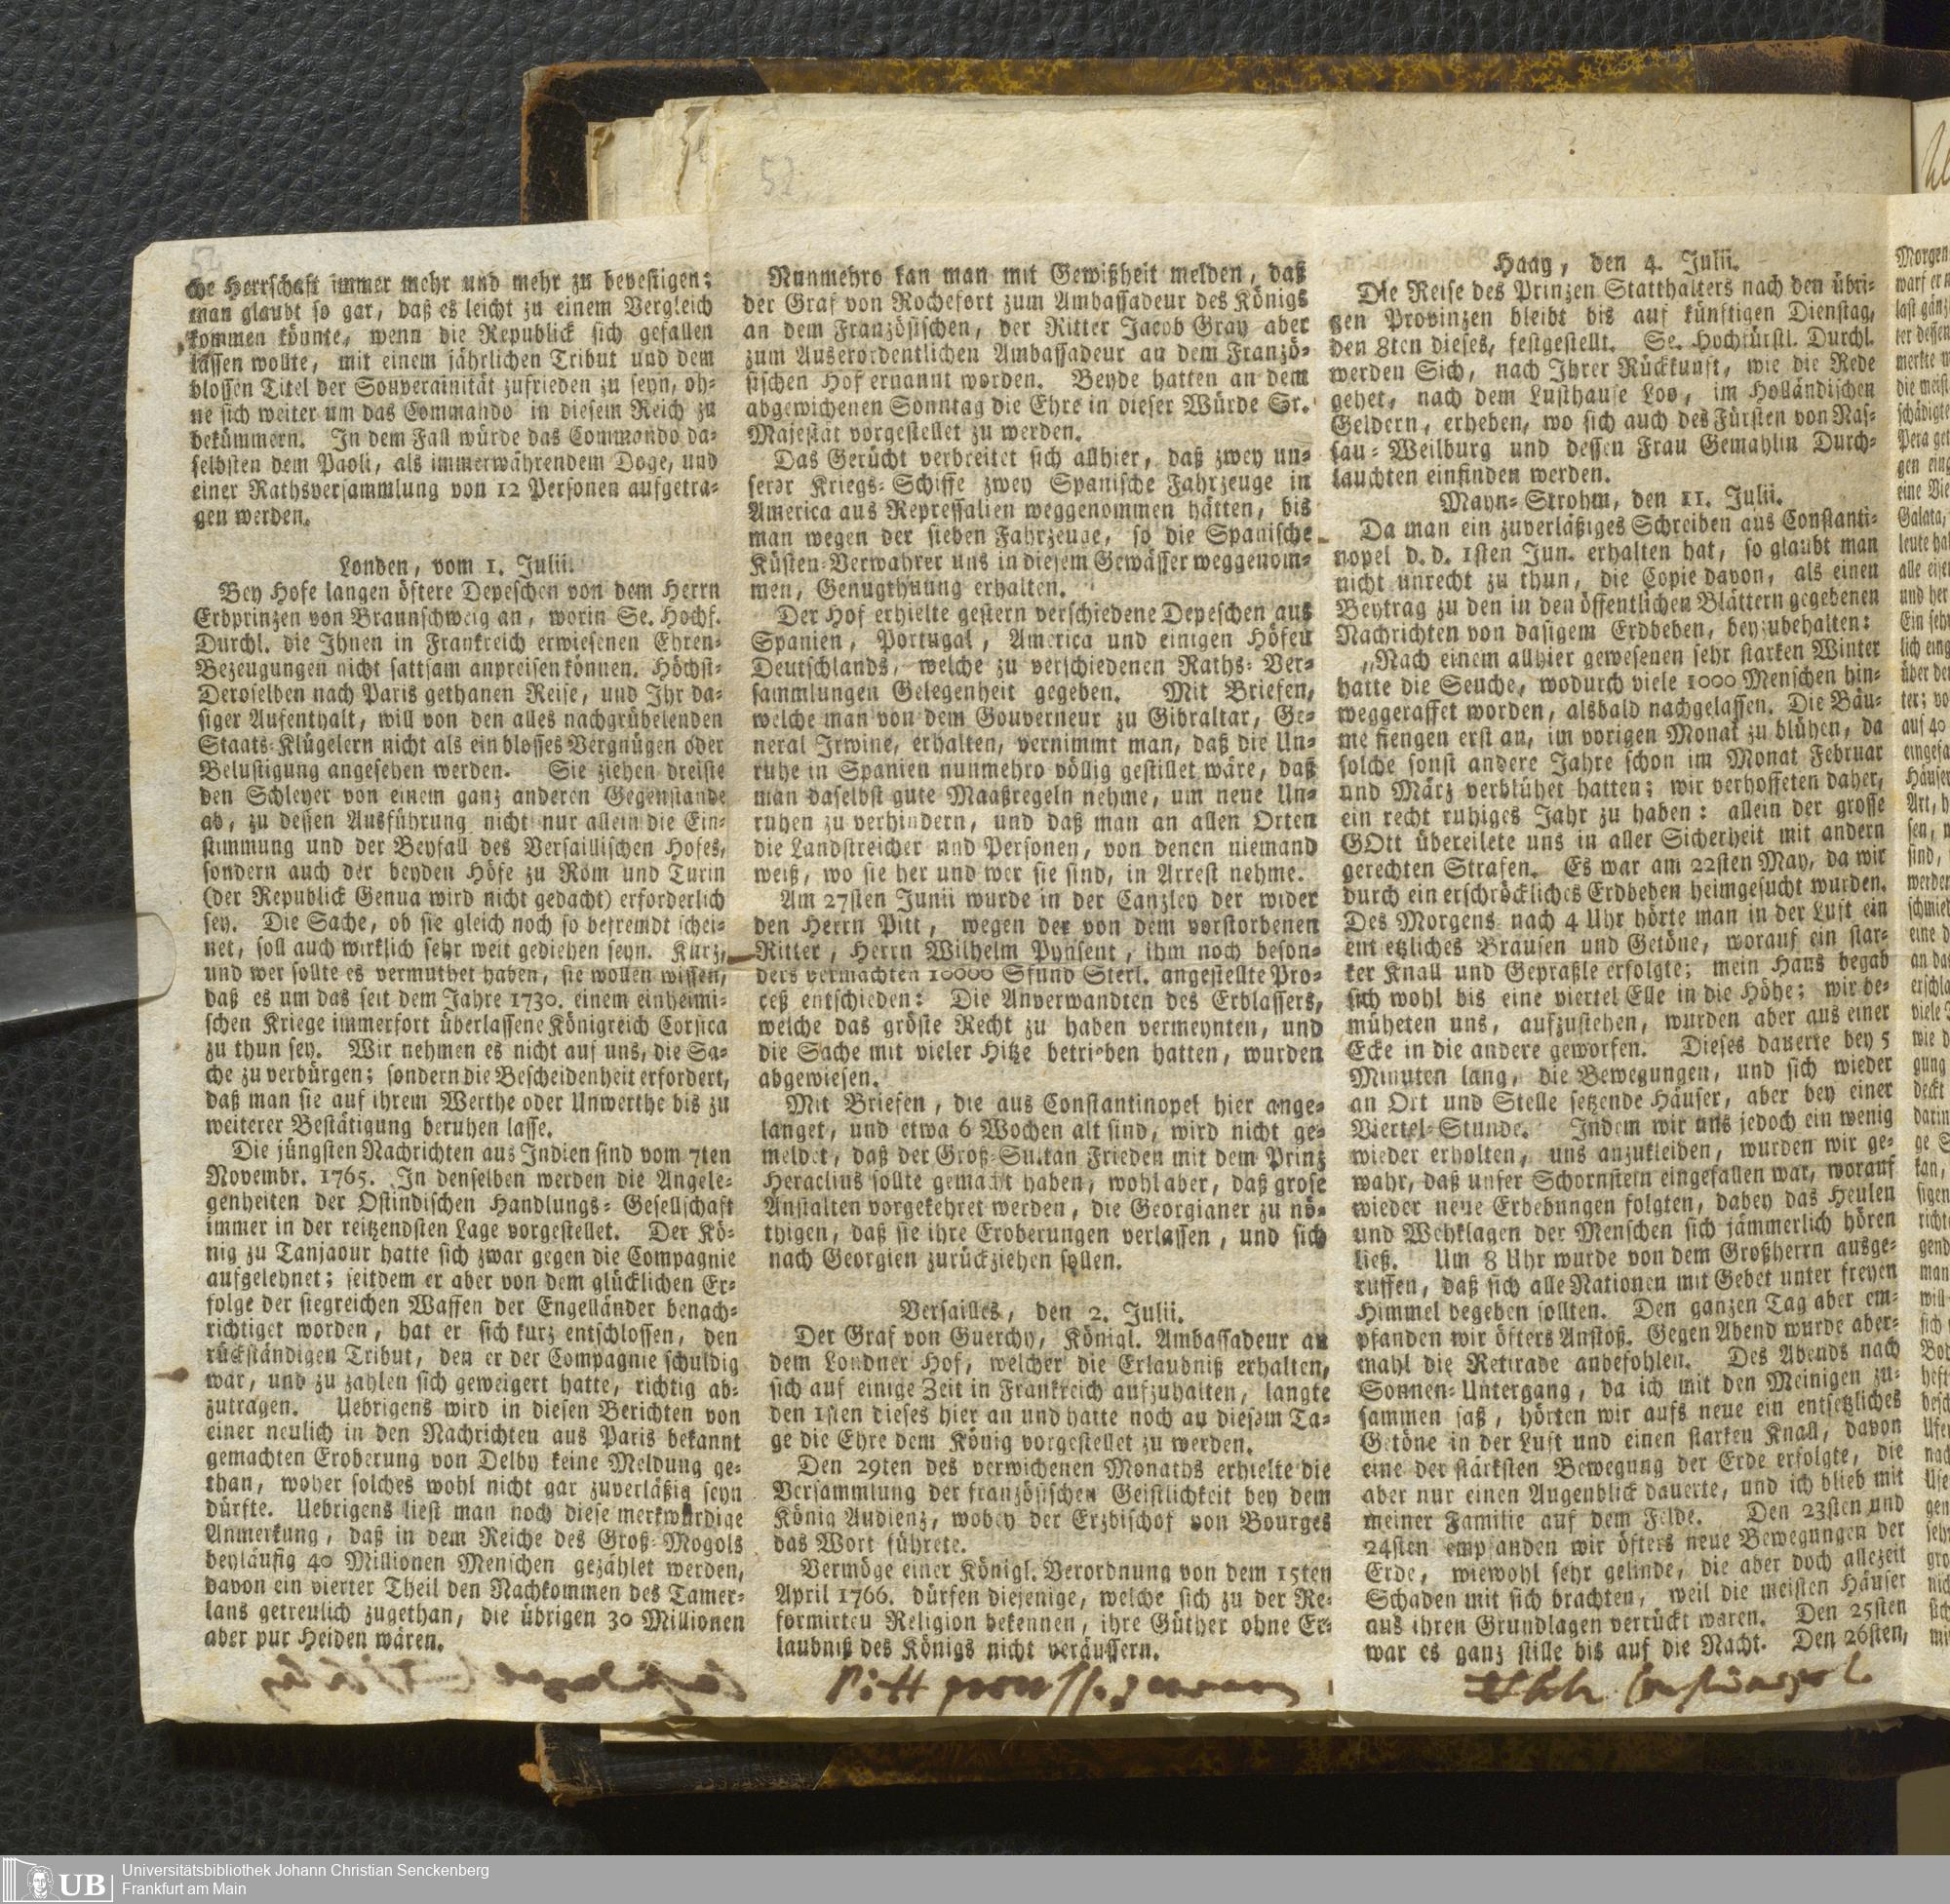 52
che Herrschaft immer mehr und mehr zu bevestigen;
man glaubt so gar, daß es leicht zu einem Vergleich
kommen könnte, wenn die Republick sich gefallen
lassen wollte, mit einem jährlichen Tribut und dem
blossen Titel der Souverainität zufrieden zu seyn, oh-
ne sich weiter um das Commando in diesem Reich zu
bekümmern. In dem Fall würde das Commando da-
selbsten dem Paoli, als immerwährendem Doge, und
einer Rathsversammlung von 12 Personen aufgetra-
gen werden.
Londen, vom 1. Julii.
Bey Hofe langen öftere Depeschen von dem Herrn
Erbprinzen von Braunschweig an, worin Se. Hochf.
Durchl. die Ihnen in Frankreich erwiesenen Ehren-
Bezeugungen nicht sattsam anpreisen können. Höchst-
Deroselben nach Paris gethanen Reise, und Ihr da-
siger Aufenthalt, will von den alles nachgrübelenden
Staats-Klügelern nicht als ein blosses Vergnügen oder
Belustigung angesehen werden. Sie ziehen dreiste
den Schleyer von einem ganz anderen Gegenstande
ab, zu dessen Ausführung nicht nur allein die Ein-
stimmung und der Beyfall des Versaillischen Hofes,
sondern auch der beyden Höfe zu Rom und Turin
(der Republick Genua wird nicht gedacht) erforderlich
sey. Die Sache, ob sie gleich noch so befremdt schei-
net, soll auch wirklich sehr weit gediehen seyn. Kurz,
und wer sollte es vermuthet haben, sie wollen wissen,
daß es um das seit dem Jahre 1730. einem einheimi-
schen Kriege immerfort überlassene Königreich Corsica
zu thun sey. Wir nehmen es nicht auf uns, die Sa-
che zu verbürgen; sondern die Bescheidenheit erfordert,
daß man sie auf ihrem Werthe oder Unwerthe bis zu
weiterer Bestätigung beruhen lasse.
Die jüngsten Nachrichten aus Indien sind vom 7ten
Novembr. 1765. In denselben werden die Angele-
genheiten der Ostindischen Handlungs-Gesellschaft
immer in der reitzendsten Lage vorgestellet. Der Kö-
nig zu Tanjaour hatte sich zwar gegen die Compagnie
aufgelehnet; seitdem er aber von dem glücklichen Er-
folge der siegreichen Waffen der Engelländer benach-
richtiget worden, hat er sich kurz entschlossen, den
rückständigen Tribut, den er der Compagnie schuldig
war, und zu zahlen sich geweigert hatte, richtig ab-
zutragen. Uebrigens wird in diesen Berichten von
einer neulich in den Nachrichten aus Paris bekannt
gemachten Eroberung von Delby keine Meldung ge-
than, woher solches wohl nicht gar zuverläßig seyn
dürfte. Uebrigens liest man noch diese merkwürdige
Anmerkung, daß in dem Reiche des Groß-Mogols
beyläufig 40 Millionen Menschen gezählet werden,
davon ein vierter Theil den Nachkommen des Tamer-
lans getreulich zugethan, die übrigen 30 Millionen
aber pur Heiden wären.
52
Nunmehro kan man mit Gewißheit melden, daß
der Graf von Rochefort zum Ambassadeur des Königs
an dem Französischen, der Ritter Jacob Gray aber
zum Auserordentlichen Ambassadeur an dem Franzö-
sischen Hof ernannt worden. Beyde hatten an dem
abgewichenen Sonntag die Ehre in dieser Würde Sr.
Majestät vorgestellet zu werden.
Das Gerücht verbreitet sich allhier, daß zwey un-
serer Kriegs-Schiffe zwey Spanische Fahrzeuge in
America aus Repressalien weggenommen hätten, bis
man wegen der sieben Fahrzeuge, so die Spanische
Küsten-Verwahrer uns in diesem Gewässer weggenom-
men, Genugthuung erhalten.
Der Hof erhielte gestern verschiedene Depeschen aus
Spanien, Portugal, America und einigen Höfen
Deutschlands, welche zu verschiedenen Raths-Ver-
sammlungen Gelegenheit gegeben. Mit Briefen,
welche man von dem Gouverneur zu Gibraltar, Ge-
neral Irwine, erhalten, vernimmt man, daß die Un-
ruhe in Spanien nunmehro völlig gestillet wäre, daß
man daselbst gute Maaßregeln nehme, um neue Un-
ruhen zu verhindern, und daß man an allen Orten
die Landstreicher und Personen, von denen niemand
weiß, wo sie her und wer sie sind, in Arrest nehme.
Am 27sten Junii wurde in der Canzley der wider
den Herrn Pitt, wegen der von dem vorstorbenen
Ritter, Herrn Wilhelm Pynsent, ihm noch beson-
ders vermachten 10000 Sfund Sterl. angestellte Pro-
ceß entschieden: Die Anverwandten des Erblassers,
welche das gröste Recht zu haben vermeynten, und
die Sache mit vieler Hitze betrieben hatten, wurden
abgewiesen.
Mit Briefen, die aus Constantinopel hier ange-
langet, und etwa 6 Wochen alt sind, wird nicht ge-
meldet, daß der Groß-Sultan Frieden mit dem Prinz
Heraclius sollte gemacht haben, wohl aber, daß grose
Anstalten vorgekehret werden, die Georgianer zu nö-
thigen, daß sie ihre Eroberungen verlassen, und sich
nach Georgien zurückziehen sollen.
Versailles, den 2. Julii.
Der Graf von Guerchy, Königl. Ambassadeur an
dem Londner Hof, welcher die Erlaubniß erhalten,
sich auf einige Zeit in Frankreich aufzuhalten, langte
den 1sten dieses hier an und hatte noch an diesem Ta-
ge die Ehre dem König vorgestellet zu werden.
Den 29ten des verwichenen Monaths erhielte die
Versammlung der französischen Geistlichkeit bey dem
König Audienz, wobey der Erzbischof von Bourges
das Wort führete.
Vermöge einer Königl. Verordnung von dem 15ten
April 1766. dürfen diejenige, welche sich zu der Re-
formirten Religion bekennen, ihre Güther ohne Er-
laubniß des Königs nicht veräussern.
Pitt
Haag, den 4. Julii.
Die Reise des Prinzen Statthalters nach den übri-
gen Provinzen bleibt bis auf künftigen Dienstag,
den 8ten dieses, festgestellt. Se. Hochfürstl. Durchl.
werden Sich, nach Ihrer Rückkunft, wie die Rede
gehet, nach dem Lusthause Loo, im Holländischen
Geldern, erheben, wo sich auch des Fürsten von Nas-
sau-Weilburg und dessen Frau Gemahlin Durch-
lauchten einfinden werden.
Mayn-Strohm, den 11. Julii.
Da man ein zuverläßiges Schreiben aus Constanti-
nopel d. d. 1sten Jun. erhalten hat, so glaubt man
nicht unrecht zu thun, die Copie davon, als einen
Beytrag zu den in den öffentlichen Blättern gegebenen
Nachrichten von dasigem Erdbeben, beyzubehalten:
„Nach einem allhier gewesenen sehr starken Winter
hatte die Seuche, wodurch viele 1000 Menschen hin-
weggeraffet worden, alsbald nachgelassen. Die Bäu-
me fiengen erst an, im vorigen Monat zu blühen, da
solche sonst andere Jahre schon im Monat Februar
und März verblühet hatten; wir verhoffeten daher,
ein recht ruhiges Jahr zu haben: allein der grosse
GOtt übereilete uns in aller Sicherheit mit andern
gerechten Strafen. Es war am 22sten May, da wir
durch ein erschröckliches Erdbeben heimgesucht wurden.
Des Morgens nach 4 Uhr hörte man in der Luft ein
entsetzliches Brausen und Getöne, worauf ein star-
ker Knall und Gepraßle erfolgte; mein Haus begab
sich wohl bis eine viertel Elle in die Höhe; wir be-
müheten uns, aufzustehen, wurden aber aus einer
Ecke in die andere geworfen. Dieses dauerte bey 5
Minuten lang, die Bewegungen, und sich wieder
an Ort und Stelle setzende Häuser, aber bey einer
Viertel-Stunde. Indem wir uns jedoch ein wenig
wieder erholten, uns anzukleiden, wurden wir ge-
wahr, daß unser Schornstein eingefallen war, worauf
wieder neue Erhebungen folgten, dabey das Heulen
und Wehklagen der Menschen sich jämmerlich hören
ließ. Um 8 Uhr wurde von dem Großherrn ausge-
ruffen, daß sich alle Nationen mit Gebet unter freyen
Himmel begeben sollten. Den ganzen Tag aber em-
pfanden wir öfters Anstoß. Gegen Abend wurde aber-
mahl die Retirade anbefohlen. Des Abends nach
Sonnen-Untergang, da ich mit den Meinigen zu-
sammen saß, hörten wir aufs neue ein entsetzliches
Getöne in der Luft und einen starken Knall, davon
eine der stärksten Bewegung der Erde erfolgte, die
aber nur einen Augenblick dauerte, und ich blieb mit
meiner Familie auf dem Felde. Den 23sten und
24sten empfanden wir öfters neue Bewegungen der
Erde, wiewohl sehr gelinde, die aber doch allezeit
Schaden mit sich brachten, weil die meisten Häuser
aus ihren Grundlagen verrückt waren. Den 25sten
war es ganz stille bis auf die Nacht. Den 26sten,
Morgen
Pera
Galata,
Häuser
Art,
UB
Universitätsbibliothek Johann Christian Senckenberg
Frankfurt am Main